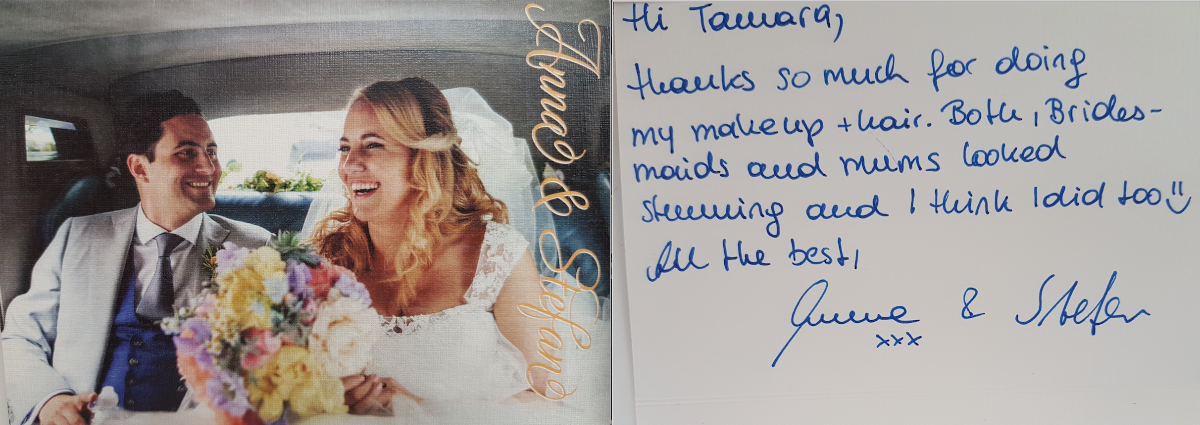 Anna & Stefan
Hi Tamara,
thanks so much for doing
my makeup + hair. Both, Brides-
maids and mums looked
stunning and I think I did too ü
All the best,
Anna & Stefan
xxx